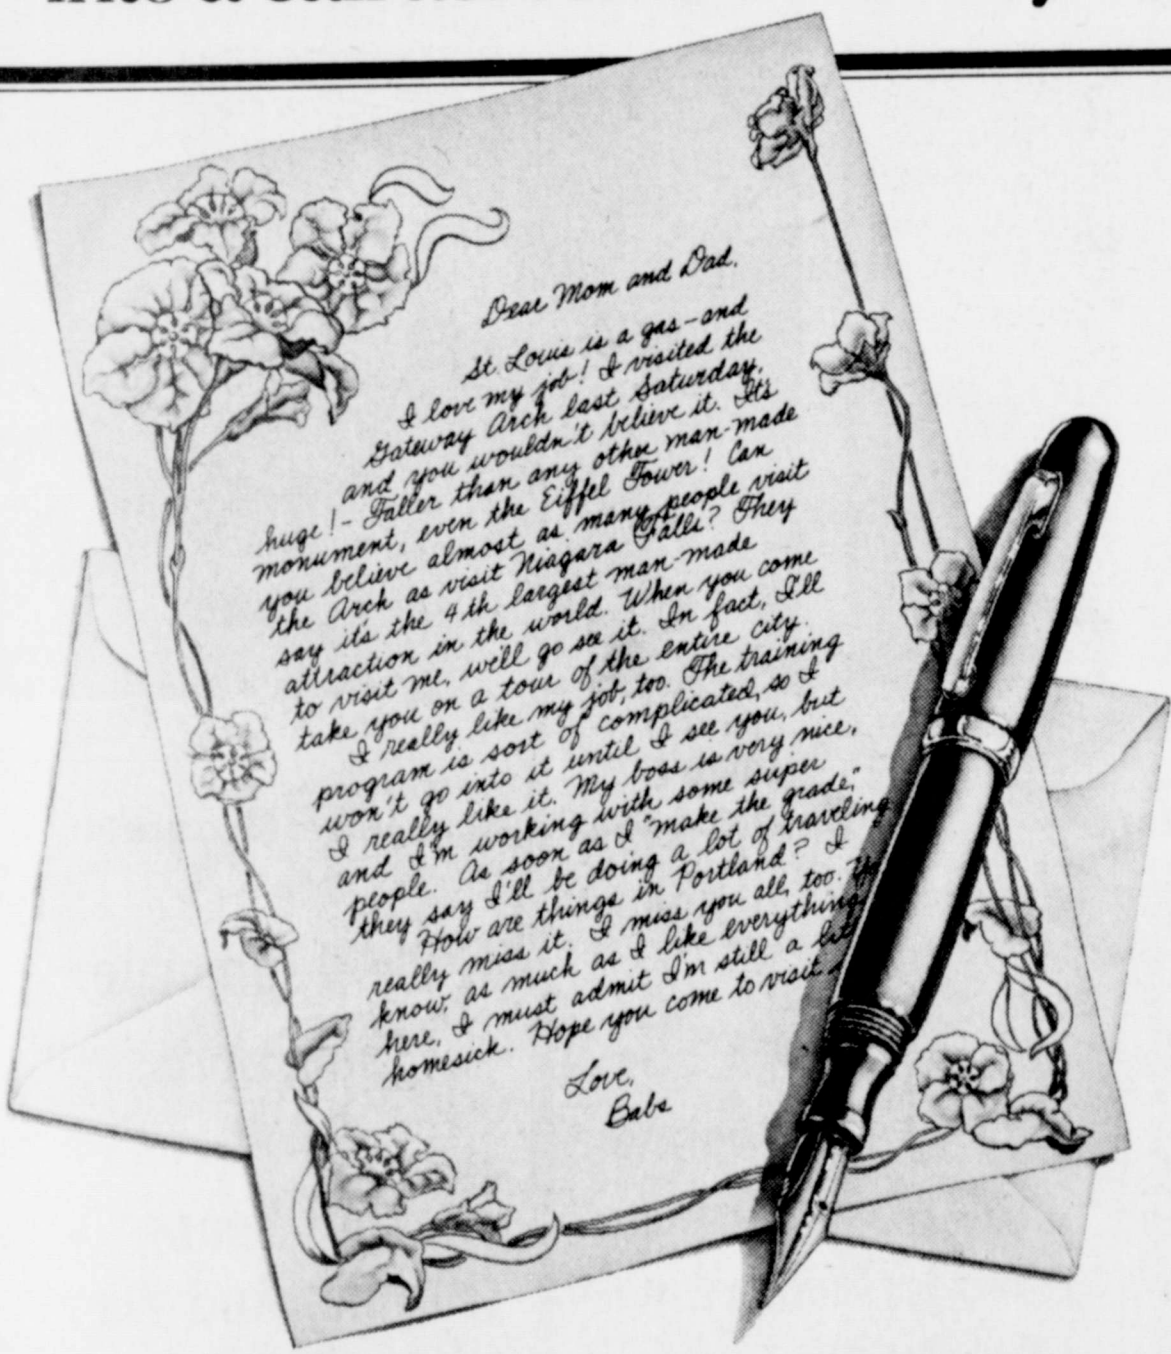 Dear Mom and Dad,
St. Louis is a gas - and
I love my job! I visited the
Gateway Arch last Saturday,
and you wouldn't believe it. It's
huge! - Taller than any other man-made
monument, even the Eiffel Tower! Can
you believe almost as many people visit
the Arch as visit Niagara Falls? They
say it's the 4th largest man-made
attraction in the world. When you come
to visit me, we'll go see it. In fact, I'll
take you on a tour of the entire city.
I really like my job, too. The training
program is sort of complicated, so I
won't go into it until I see you, but
I really like it. My boss is very nice,
and I'm working with some super
people. As soon as I "make the grade,"
they say I'll be doing a lot of traveling
How are things in Portland? I
really miss it. I miss you all, too.
know, as much as I like everything
here, I must admit I'm still a bit
homesick. Hope you come to visit
Love,
Babs